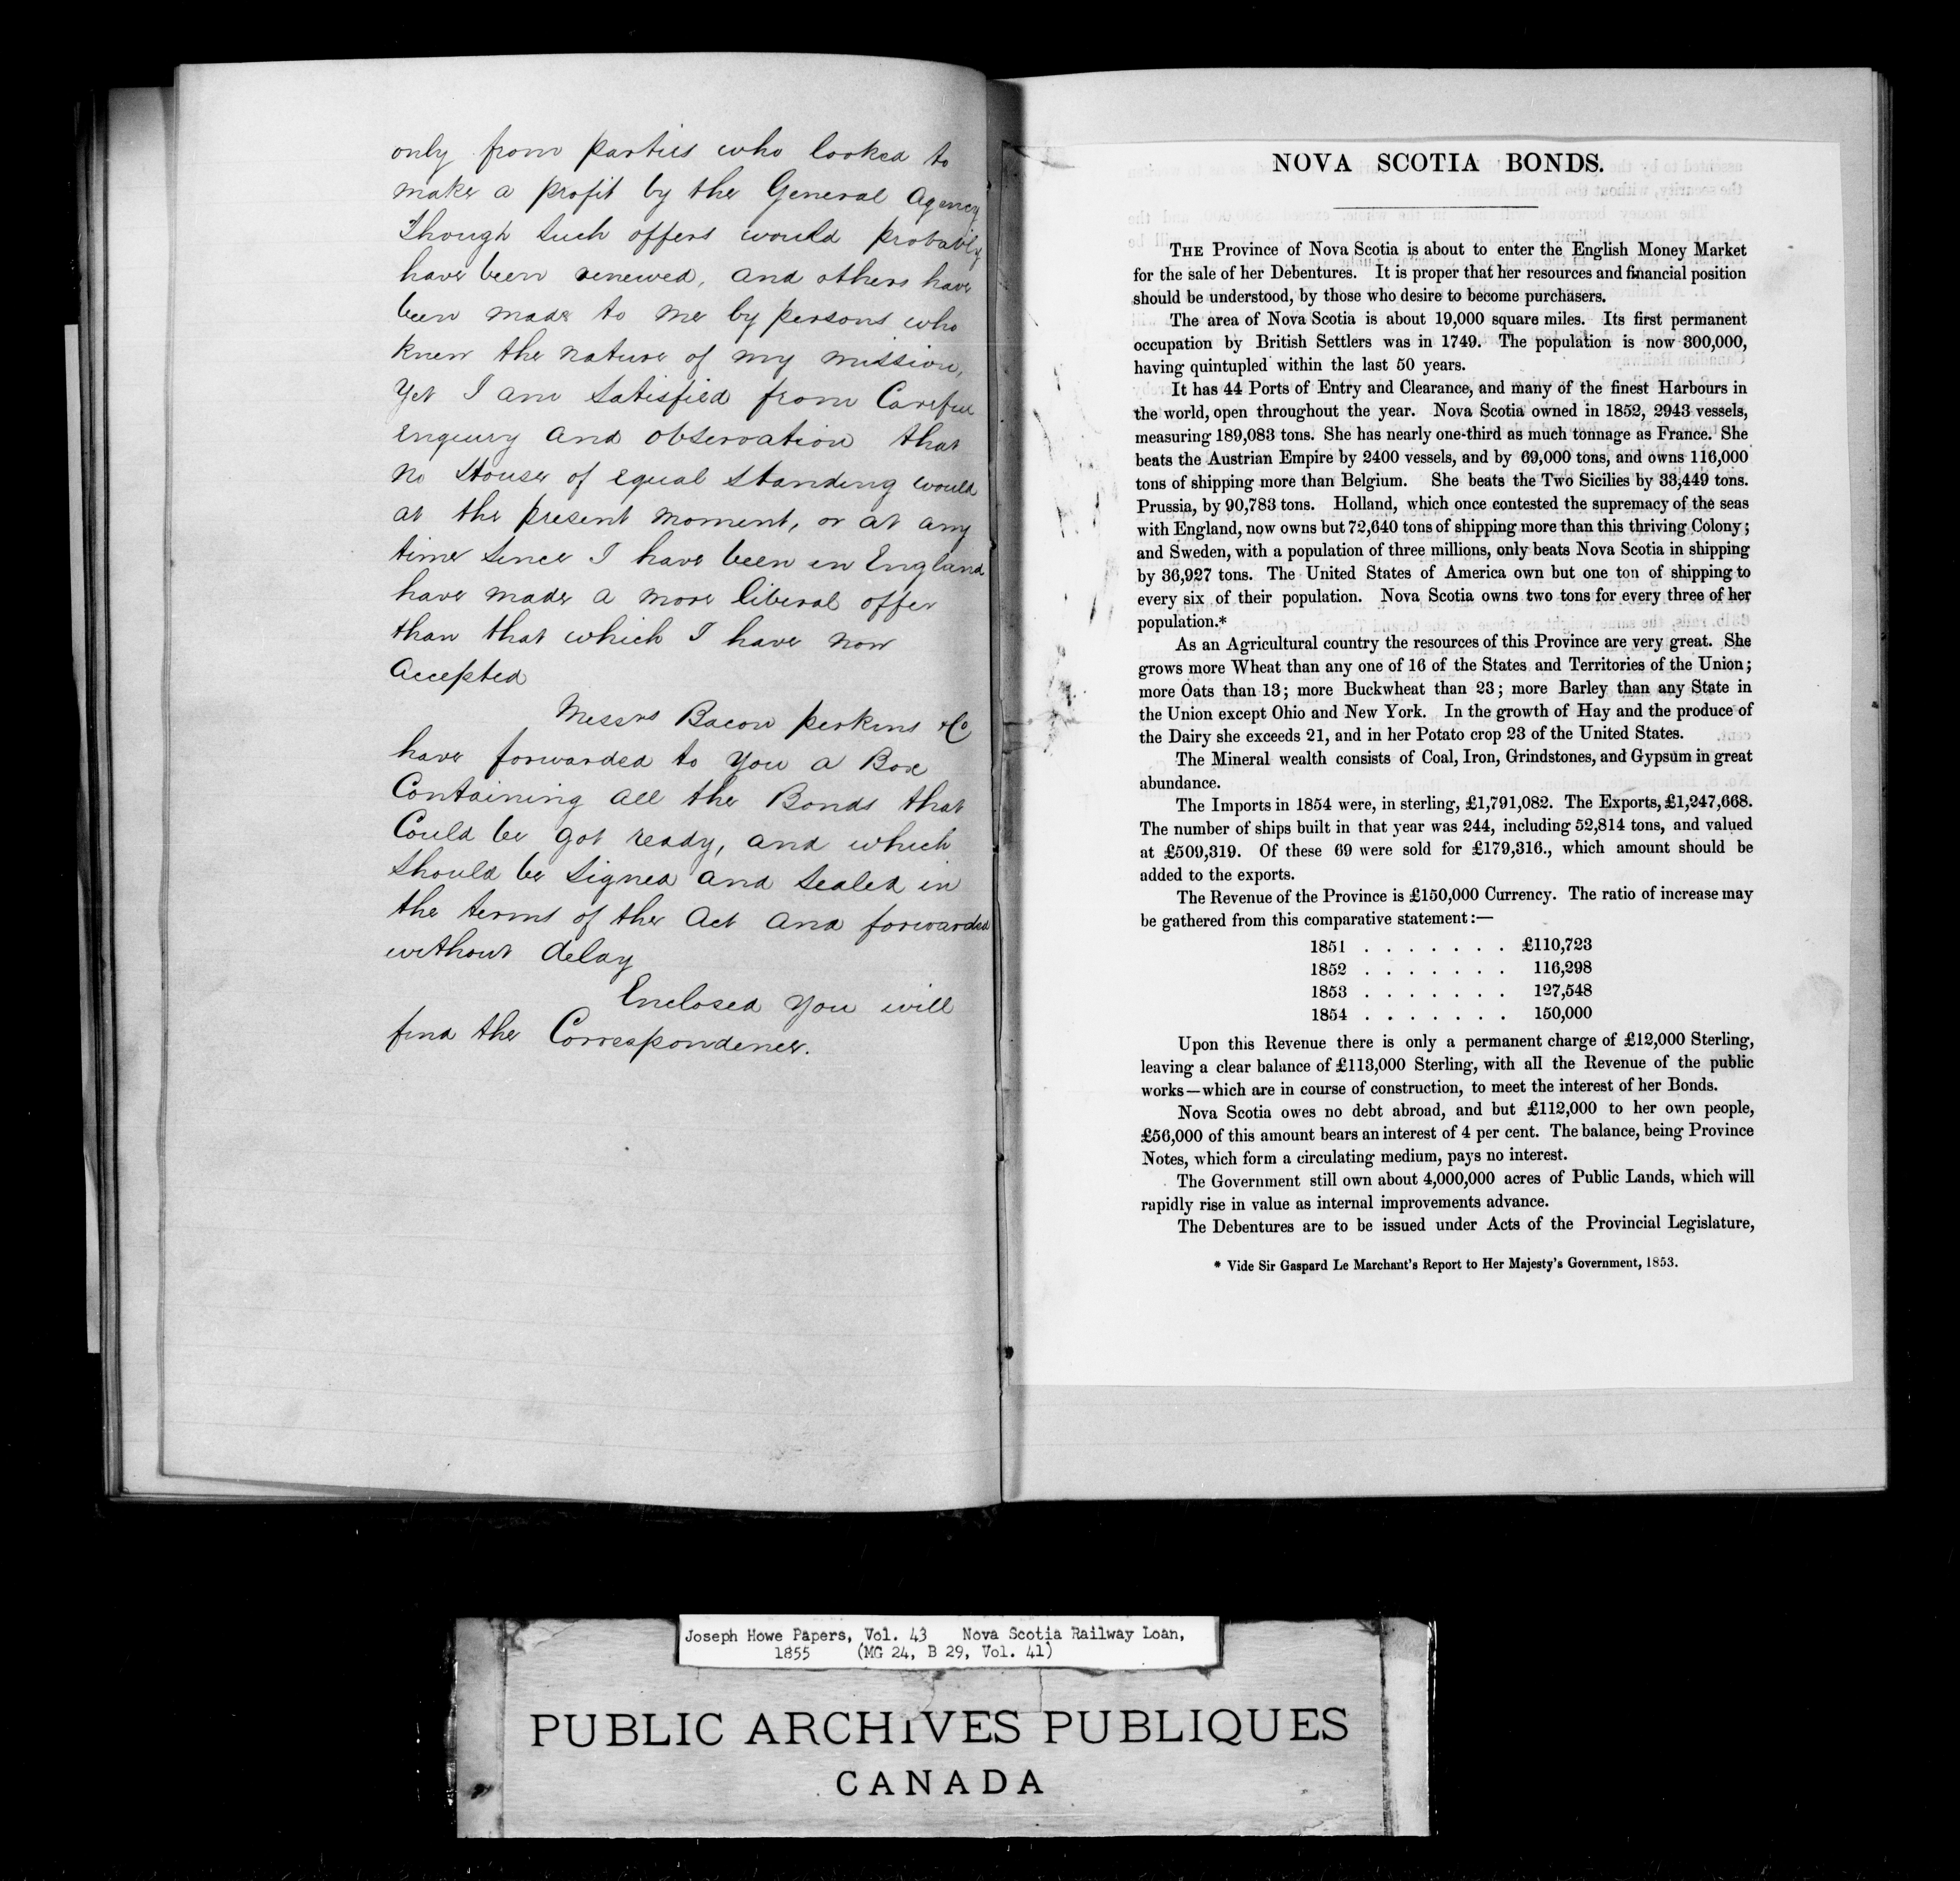 only from parties who looked to
make a profit by the General Agency
Though such offers would probably
have been renewed, and others have
been made to me by persons who
knew the nature of my mission,
yet I am satisfied from Careful
enquiry and observation that
no House of equal standing would
at the present moment, or at any
time since I have been in England
have made a more liberal offer
than that which I have now
accepted
Messrs Bacon perkins & Co
have forwarded to you a Box
Containing all the Bonds that
Could be got ready, and which
should be signed and sealed in
the terms of the Act and forwarded
without delay
Enclosed you will
find the Correspondence.
NOVA SCOTIA BONDS.
THE Province of Nova Scotia is about to enter the English Money Market
for the sale of her Debentures. It is proper that her resources and financial position
should be understood, by those who desire to become purchasers.
The area of Nova Scotia is about 19,000 square miles. Its first permanent
occupation by British Settlers was in 1749. The population is now 300,000,
having quintupled within the last 50 years.
It has 44 Ports of Entry and Clearance, and many of the finest Harbours in
the world, open throughout the year. Nova Scotia owned in 1852, 2943 vessels,
measuring 189,083 tons. She has nearly one-third as much tonnage as France. She
beats the Austrian Empire by 2400 vessels, and by 69,000 tons, and owns 116,000
tons of shipping more than Belgium. She beats the Two Sicilies by 33,449 tons.
Prussia, by 90,783 tons. Holland, which once contested the supremacy of the seas
with England, now owns but 72,640 tons of shipping more than this thriving Colony;
and Sweden, with a population of three millions, only beats Nova Scotia in shipping
by 36,927 tons. The United States of America own but one ton of shipping to
every six of their population. Nova Scotia owns two tons for every three of her
population.*
As an Agricultural country the resources of this Province are very great. She
grows more Wheat than any one of 16 of the States and Territories of the Union;
more Oats than 13; more Buckwheat than 23; more Barley than any State in
the Union except Ohio and New York. In the growth of Hay and the produce of
the Dairy she exceeds 21, and in her Potato crop 23 of the United States.
The Mineral wealth consists of Coal, Iron, Grindstones, and Gypsum in great
abundance.
The Imports in 1854 were, in sterling, £1,791,082. The Exports, £1,247,668.
The number of ships built in that year was 244, including 52,814 tons, and valued
at £509,319. Of these 69 were sold for £179,316., which amount should be
added to the exports.
The Revenue of the Province is £150,000 Currency. The ratio of increase may
be gathered from this comparative statement:—
1851 . . . . . . . £110,723
1852 . . . . . . . 116,298
1853 . . . . . . . 127,548
1854 . . . . . . . 150,000
Upon this Revenue there is only a permanent charge of £12,000 Sterling,
leaving a clear balance of £113,000 Sterling, with all the Revenue of the public
works—which are in course of construction, to meet the interest of her Bonds.
Nova Scotia owes no debt abroad, and but £112,000 to her own people,
£56,000 of this amount bears an interest of 4 per cent. The balance, being Province
Notes, which form a circulating medium, pays no interest.
The Government still own about 4,000,000 acres of Public Lands, which will
rapidly rise in value as internal improvements advance.
The Debentures are to be issued under Acts of the Provincial Legislature,
* Vide Sir Gaspard Le Marchant's Report to Her Majesty's Government, 1853.
Joseph Howe Papers, Vol. 43 Nova Scotia Railway Loan,
1855 (MG 24, B 29, Vol. 41)
PUBLIC ARCHIVES PUBLIQUES
CANADA